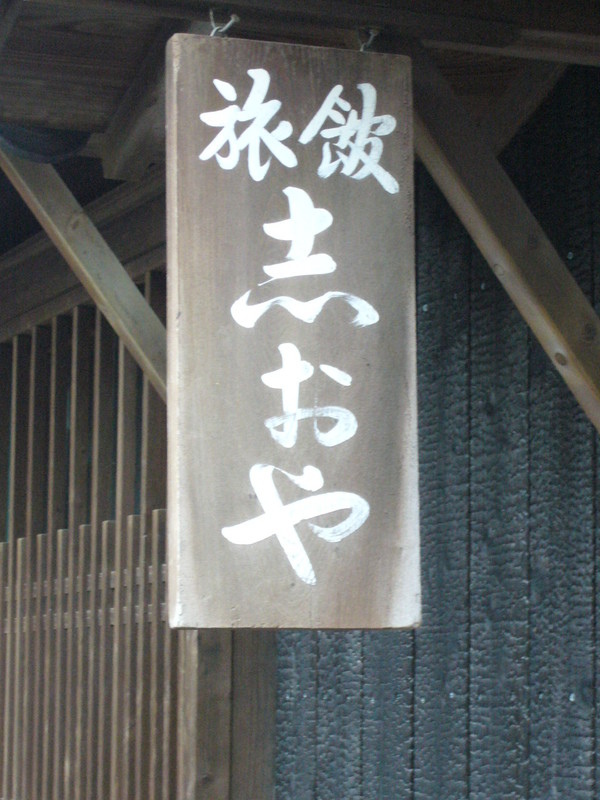 旅館
志おや